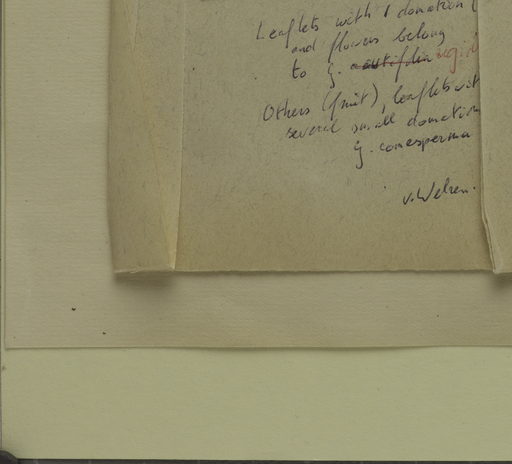 Leaflets with 1 domatium (
and flowers belong
to G.
Others (fruit), leaflets wit
several small domatium
G. conesperma
v. Welzen.